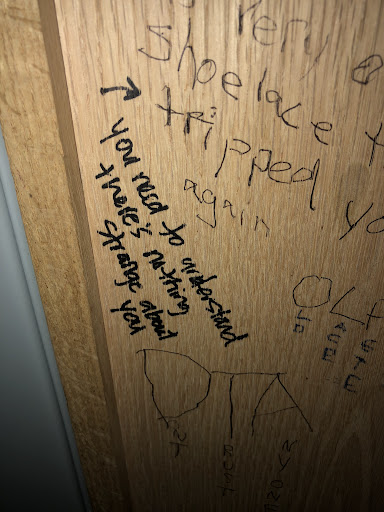 very
shoelace t
tripped yo
again
you need to understand
there's nothing
strange about
you
OL
DTA
RUST
NYONE